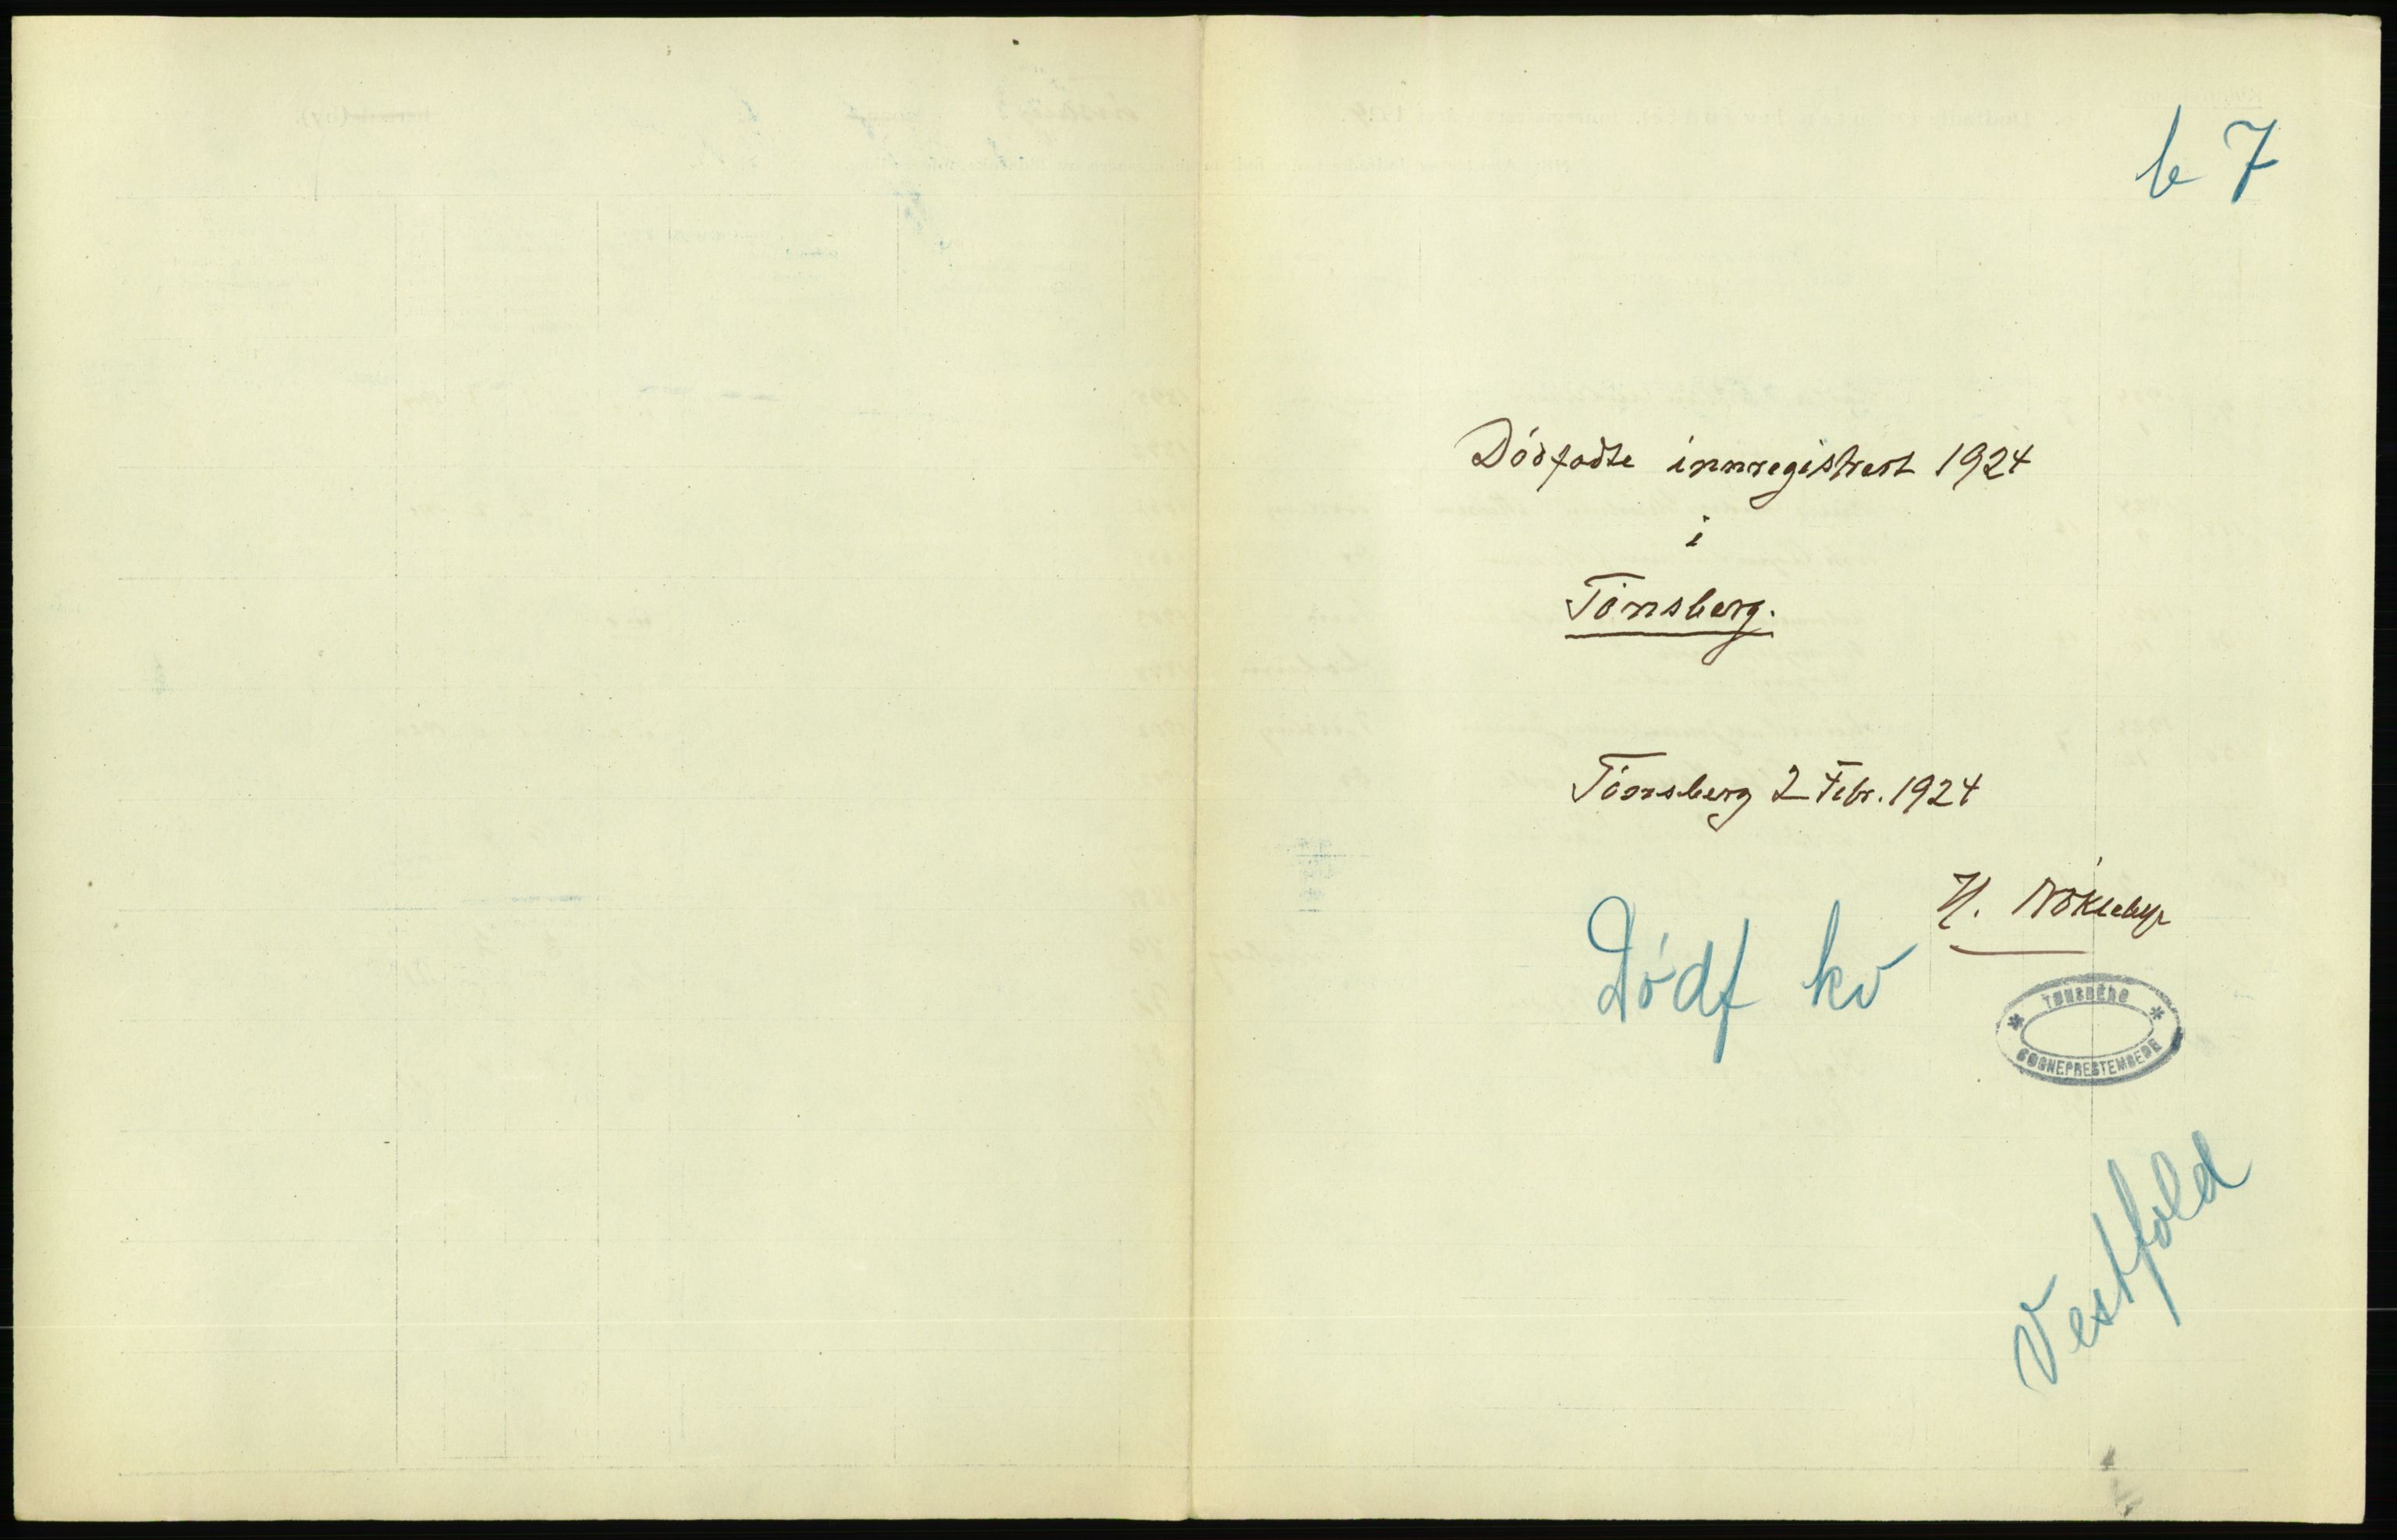 b 7
Dódfødte innregistrert 1924
i
Tónsberg.
Tónsberg 2 Febr. 1924
H. Nókleby
Dódf kv
TØNSBERG
SOGNEPRESTEMBEDE
Vestfold